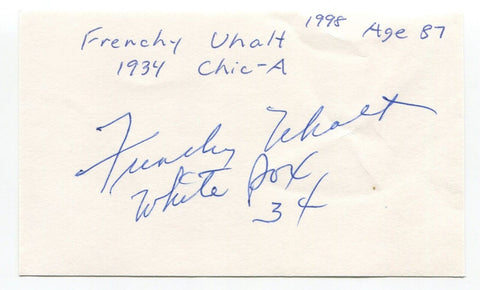 1998 Age 87
Frenchy Uhalt
1934 Chic-A
Frenchy Uhalt
White Sox
34